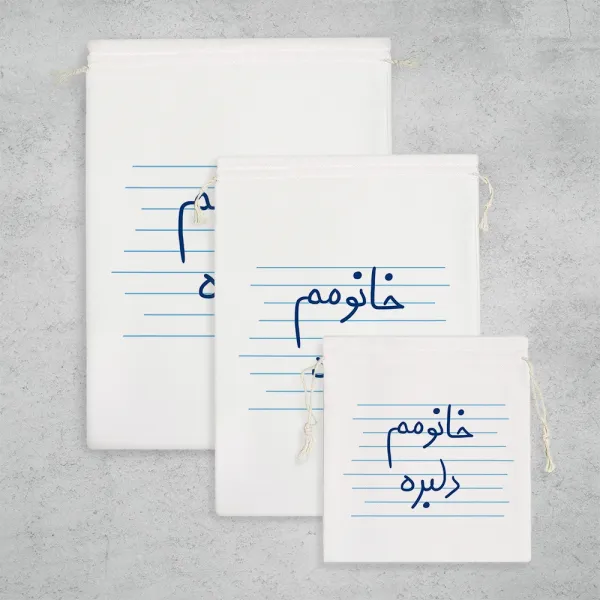 خانومم
خانومم
دلبره